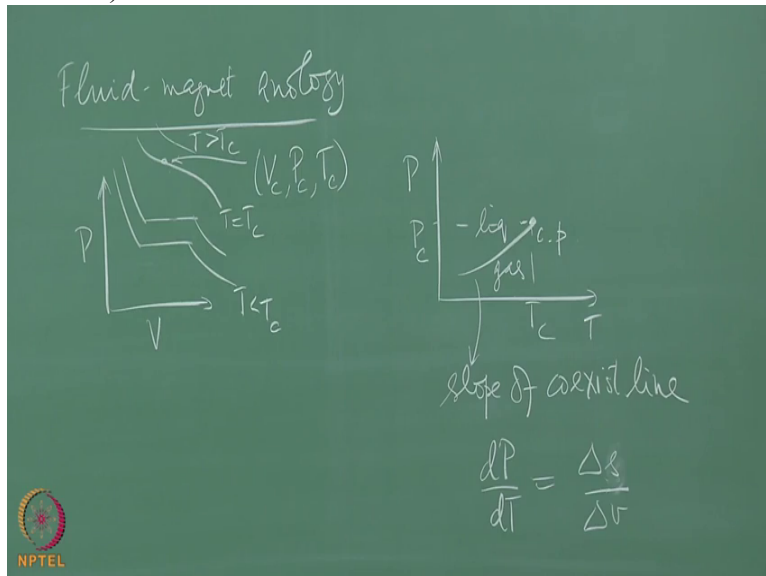 Fluid-magnet analogy
T>Tc
(Vc, Pc, Tc)
T=Tc
P
T<Tc
V
P
Pc
liq
c.p
gas
Tc
T
slope of coexist line
dP/dT = Δs/Δv
NPTEL